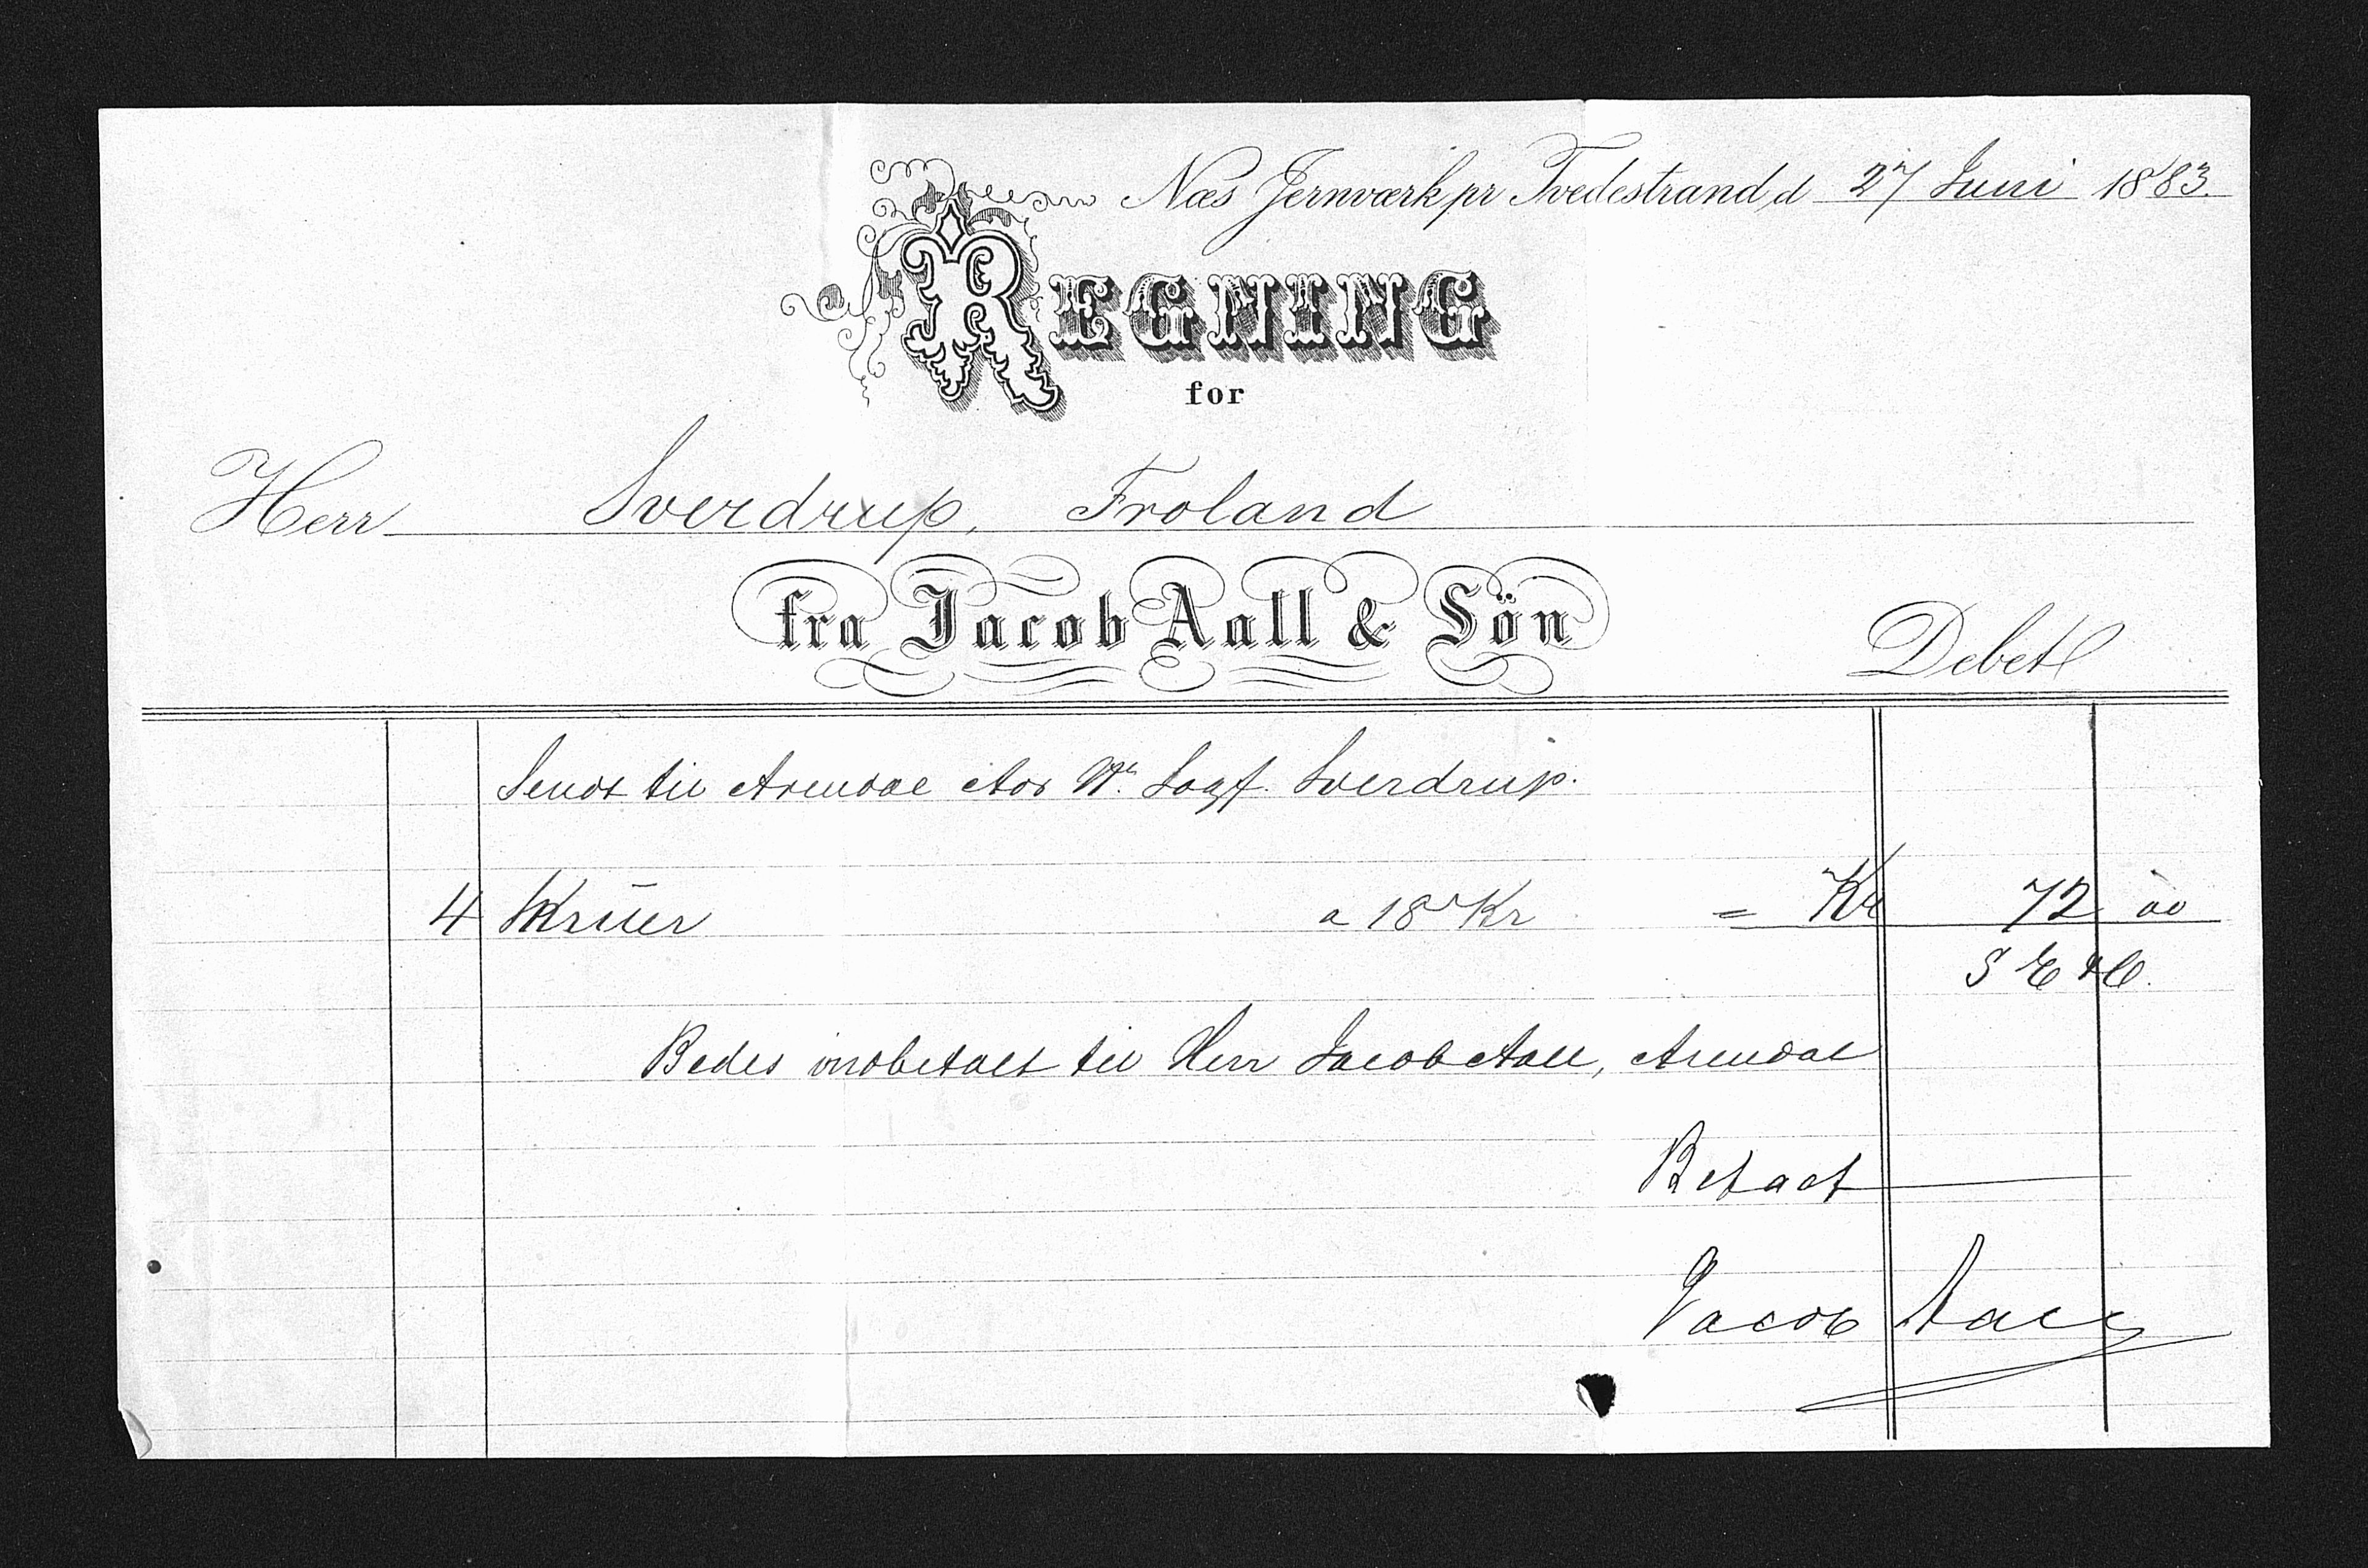 Næs Jernværk pr Tvedestrand, d 27 Juni 1883.
REGNING
for
Herr Sverdrup, Froland
fra Jacob Aall & Sön
Debet
Sendt til Arendal Sverdrup.
4 Skruer a 18 Kr = Kr 72 00
S E & O.
Bedes indbetalt til Herr Jacob Aall, Arendal
Betalt
Jacob Aall